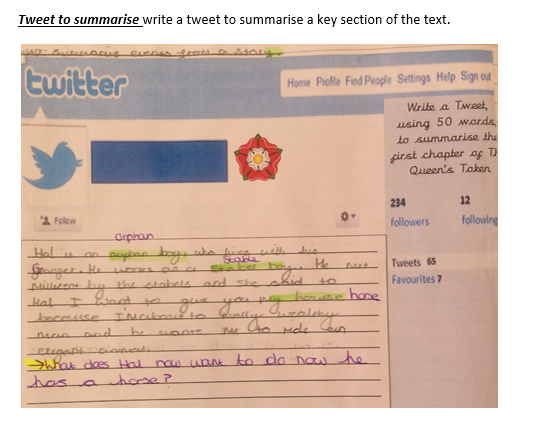 Tweet to summarise write a tweet to summarise a key section of the text.
WT: Summarise events from a Story.
twitter
Home Profile Find People Settings Help Sign out
Write a Tweet,
using 50 words,
to summarise the
first chapter of Th
Queen's Token
234
12
followers
following
Follow
Tweets 65
Favourites 7
Orphan
Hal is an orphan boy who lives with
Stable
Granger. He works as a boy. He met
millicent by the stabels and she said to
Hal I want to give you my house horse
because I'm about to marry wealthy
man and he wants me to ride an
elegant animal.
→What does Hal now want to do now he
has a horse?